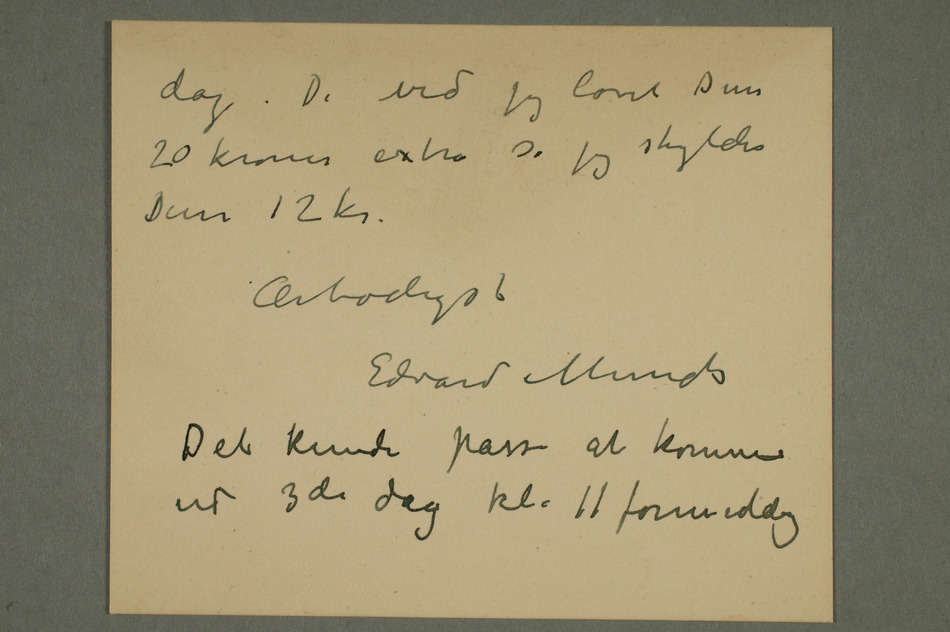 dag. De ved jeg lovet Dem
20 kroner extra Så jeg skylder
Dem 12 kr.
Ærbødigst
Edvard Munch
Det kunde passe at komme
ud 3de dag kl. 11 formiddag